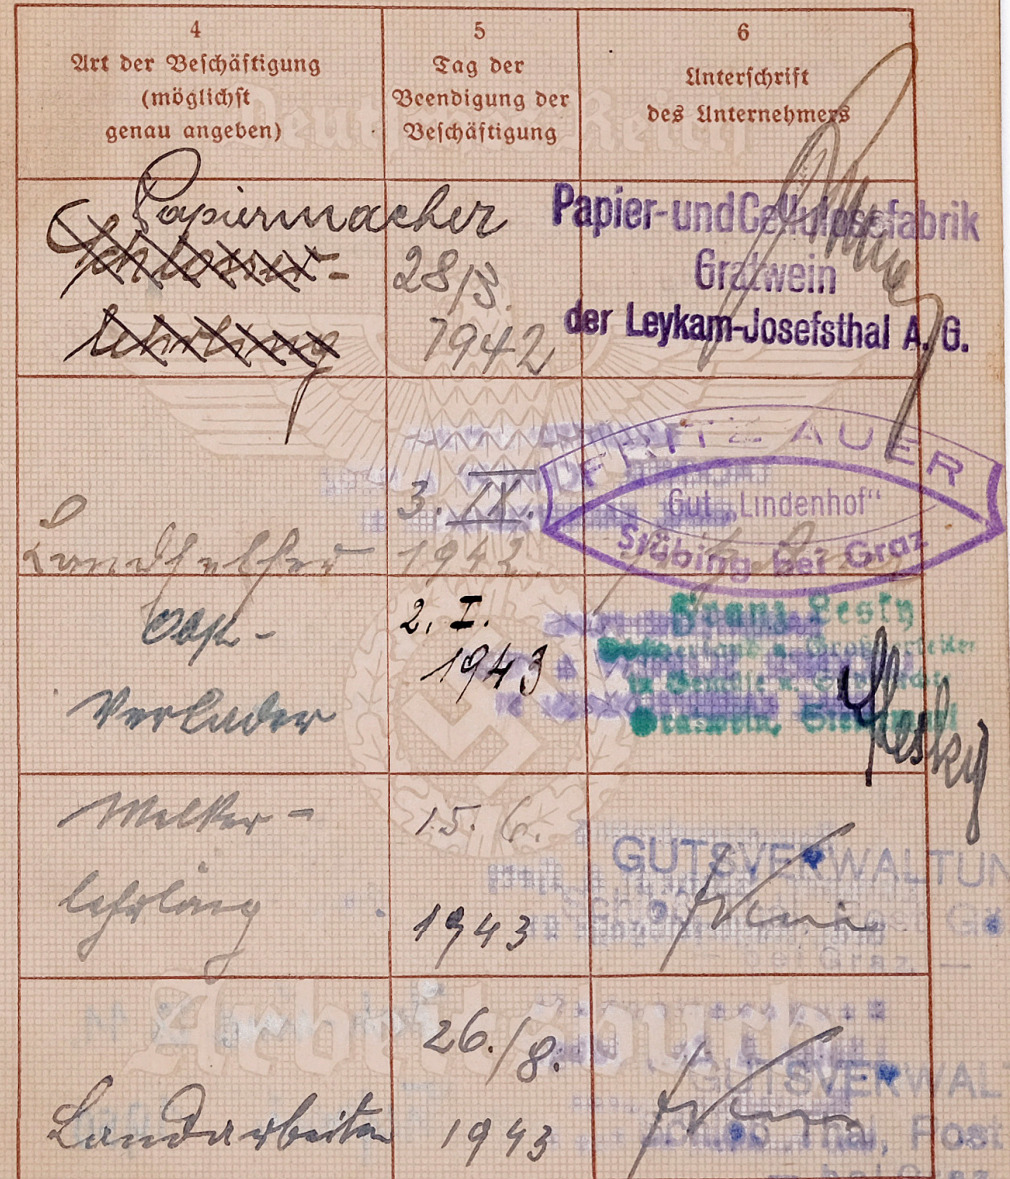 4
Art der Beschäftigung
(möglichst
genau angeben)
5
Tag der
Beendigung der
Beschäftigung
6
Unterschrift
des Unternehmers
Deutsches Reich
Papiermacher
Schlosser-
lehrling
28/3.
1942
Papier- und Cellulosefabrik
Gratwein
der Leykam-Josefsthal A. G.
Landhelfer
3. IX.
1942.
FRITZ AUER
Gut „Lindenhof“
Stübing bei Graz
Obst-
Verlader
2. I.
1943
Franz Lesky
Gratwein,
Lesky
Melker-
lehrling
15. 6.
1943
GUTSVERWALTUN
bei Graz
Arbeitsbuch
Landarbeiter
26./8.
1943
GUTSVERWAL
Schloß Thal, Post
bei Graz